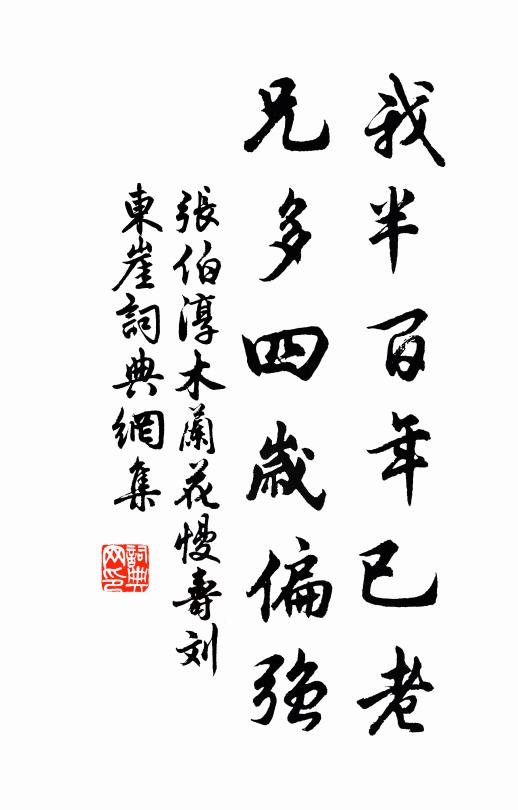 我半百年已老
兄多四歲偏強
張伯淳木蘭花慢壽刘
東崖詞典網集
詞典網印